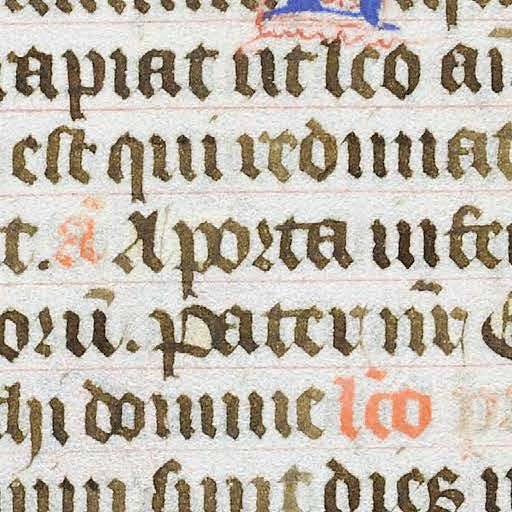 rapiat ut leo ani
est qui redimat
t. A A porta infer
orū. Pater nr̄ E
chi domine lc̄o p
sunt dies